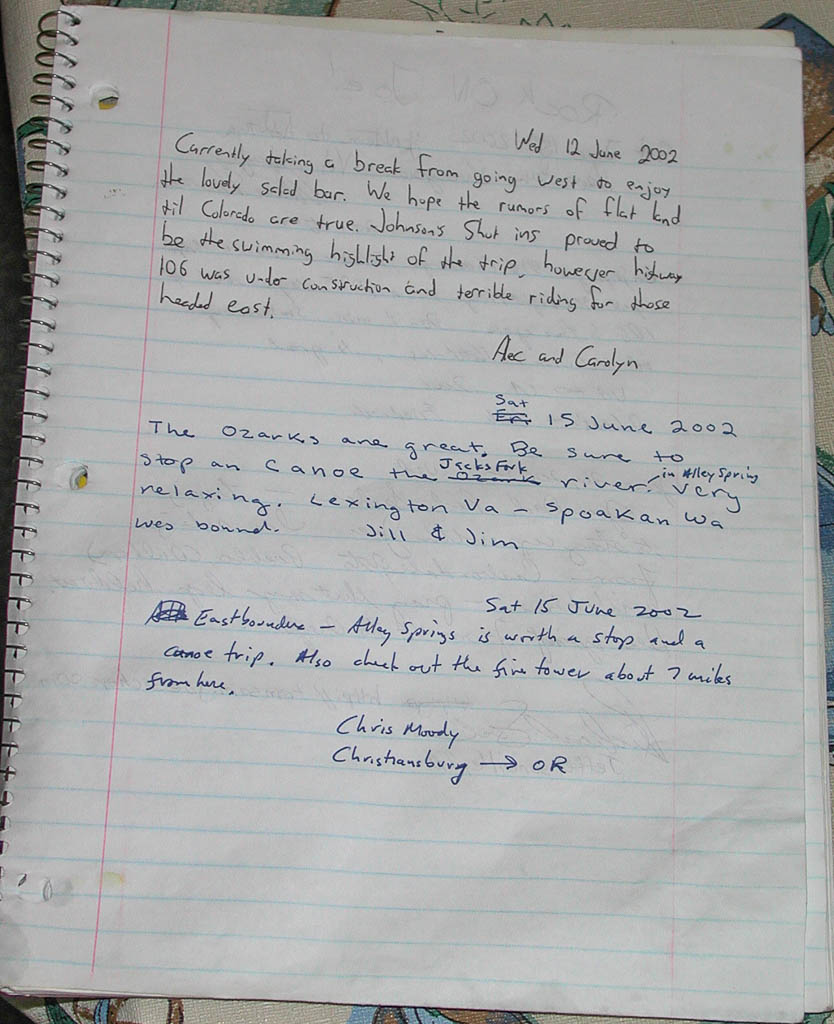 Wed 12 June 2002
Currently taking a break from going west to enjoy
the lovely salad bar. We hope the rumors of flat land
til Colorado are true. Johnson's Shut ins proved to
be the swimming highlight of the trip, however highway
106 was under construction and terrible riding for those
headed east.
Aec and Carolyn
Sat
15 June 2002
The Ozarks are great. Be sure to
stop an Canoe the Jacks Fork river in Alley Spring Very
relaxing. Lexington Va - Spoakan Wa
wes bound. Jill & Jim
Sat 15 June 2002
Eastbounders - Alley Springs is worth a stop and a
canoe trip. Also check out the fire tower about 7 miles
from here.
Chris Moody
Christiansburg → OR